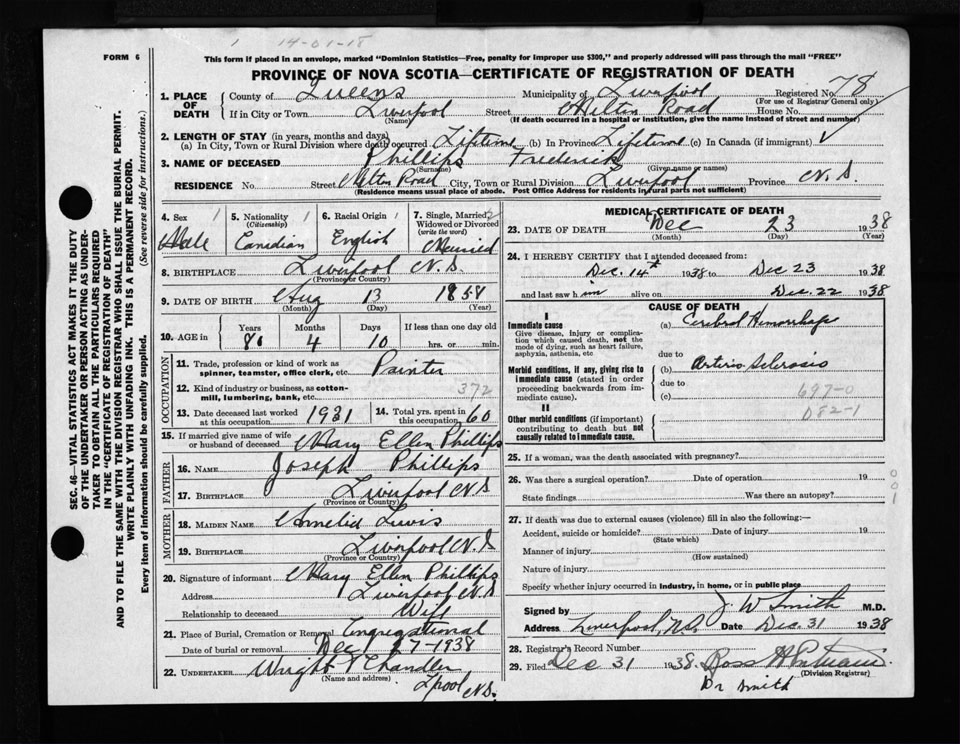 1 14-01-18
FORM 6
This form if placed in an envelope, marked "Dominion Statistics—Free, penalty for improper use $300," and properly addressed will pass through the mail "FREE"
PROVINCE OF NOVA SCOTIA—CERTIFICATE OF REGISTRATION OF DEATH
SEC. 46—VITAL STATISTICS ACT MAKES IT THE DUTY
OF THE UNDERTAKER OR PERSON ACTING AS UNDER-
TAKER TO OBTAIN ALL THE PARTICULARS REQUIRED
IN THE "CERTIFICATE OF REGISTRATION OF DEATH"
AND TO FILE THE SAME WITH THE DIVISION REGISTRAR WHO SHALL ISSUE THE BURIAL PERMIT.
WRITE PLAINLY WITH UNFADING INK. THIS IS A PERMANENT RECORD.
Every item of information should be carefully supplied. (See reverse side for instructions.)
1. PLACE OF DEATH
County of Queens Municipality of Liverpool Registered No. 78
(For use of Registrar General only)
If in City or Town Liverpool Street Milton Road House No.
(Name) (If death occurred in a hospital or institution, give the name instead of street and number)
2. LENGTH OF STAY (in years, months and days)
(a) In City, Town or Rural Division where death occurred Lifetime (b) In Province Lifetime (c) In Canada (if immigrant)
3. NAME OF DECEASED Phillips Frederick
(Surname) (Given name or names)
RESIDENCE No. Street Milton Road City, Town or Rural Division Liverpool Province N.S.
(Residence means usual place of abode. Post Office Address for residents in rural parts not sufficient)
4. Sex 1 5. Nationality 1 6. Racial Origin 1 7. Single, Married, 2
(Citizenship) Widowed or Divorced
(write the word)
Male Canadian English Married
8. BIRTHPLACE Liverpool N.S.
(Province or Country)
9. DATE OF BIRTH Aug 13 1858
(Month) (Day) (Year)
10. AGE in Years Months Days If less than one day old
80 4 10 hrs. or min.
OCCUPATION
11. Trade, profession or kind of work as
spinner, teamster, office clerk, etc. Painter
12. Kind of industry or business, as cotton-
mill, lumbering, bank, etc. 372
13. Date deceased last worked
at this occupation 1931
14. Total yrs. spent in
this occupation 60
15. If married give name of wife
or husband of deceased Mary Ellen Phillips
FATHER
16. NAME Joseph Phillips
17. BIRTHPLACE Liverpool N.S
(Province or Country)
MOTHER
18. MAIDEN NAME Amelid Lewis
19. BIRTHPLACE Liverpool N.S
(Province or Country)
20. Signature of informant Mary Ellen Phillips
Address Liverpool N.S
Relationship to deceased Wife
21. Place of Burial, Cremation or Removal Congregational
Date of burial or removal Dec 27-1938
22. UNDERTAKER Wright & Chandler
(Name and address)
L'pool N.S.
MEDICAL CERTIFICATE OF DEATH
23. DATE OF DEATH Dec 23 1938
(Month) (Day) (Year)
24. I HEREBY CERTIFY that I attended deceased from:
Dec. 14th 1938 to Dec 23 1938
and last saw h im alive on Dec. 22 1938
CAUSE OF DEATH
I
Immediate cause
Give disease, injury or complica-
tion which caused death, not the
mode of dying, such as heart failure,
asphyxia, asthenia, etc
(a) Cerebral Hemorrhage
due to
Morbid conditions, if any, giving rise to
immediate cause (stated in order
proceeding backwards from im-
mediate cause).
(b) Arterio Sclerosis
due to
(c) 697-0
082-1
II
Other morbid conditions (if important)
contributing to death but not
causally related to immediate cause.
25. If a woman, was the death associated with pregnancy?
26. Was there a surgical operation? Date of operation 19
State findings Was there an autopsy?
001
27. If death was due to external causes (violence) fill in also the following:—
Accident, suicide or homicide? Date of injury 19
(State which)
Manner of injury
(How sustained)
Nature of injury
Specify whether injury occurred in industry, in home, or in public place
Signed by J. W Smith M.D.
Address Liverpool, N.S. Date Dec. 31 1938
28. Registrar's Record Number
29. Filed Dec 31 1938. Ross H Putnam
(Division Registrar)
Dr Smith